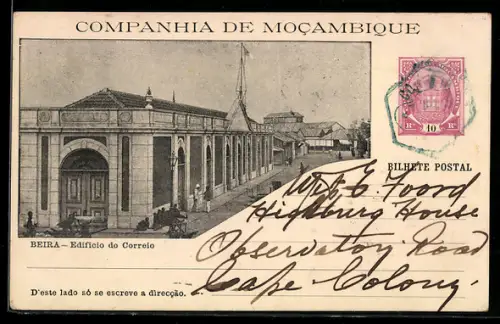 COMPANHIA DE MOÇAMBIQUE
10
BILHETE POSTAL
BEIRA – Edificio do Correio
Foord
Highburg House
Observatory Road
Cape Colony.
D'este lado só se escreve a direcção.